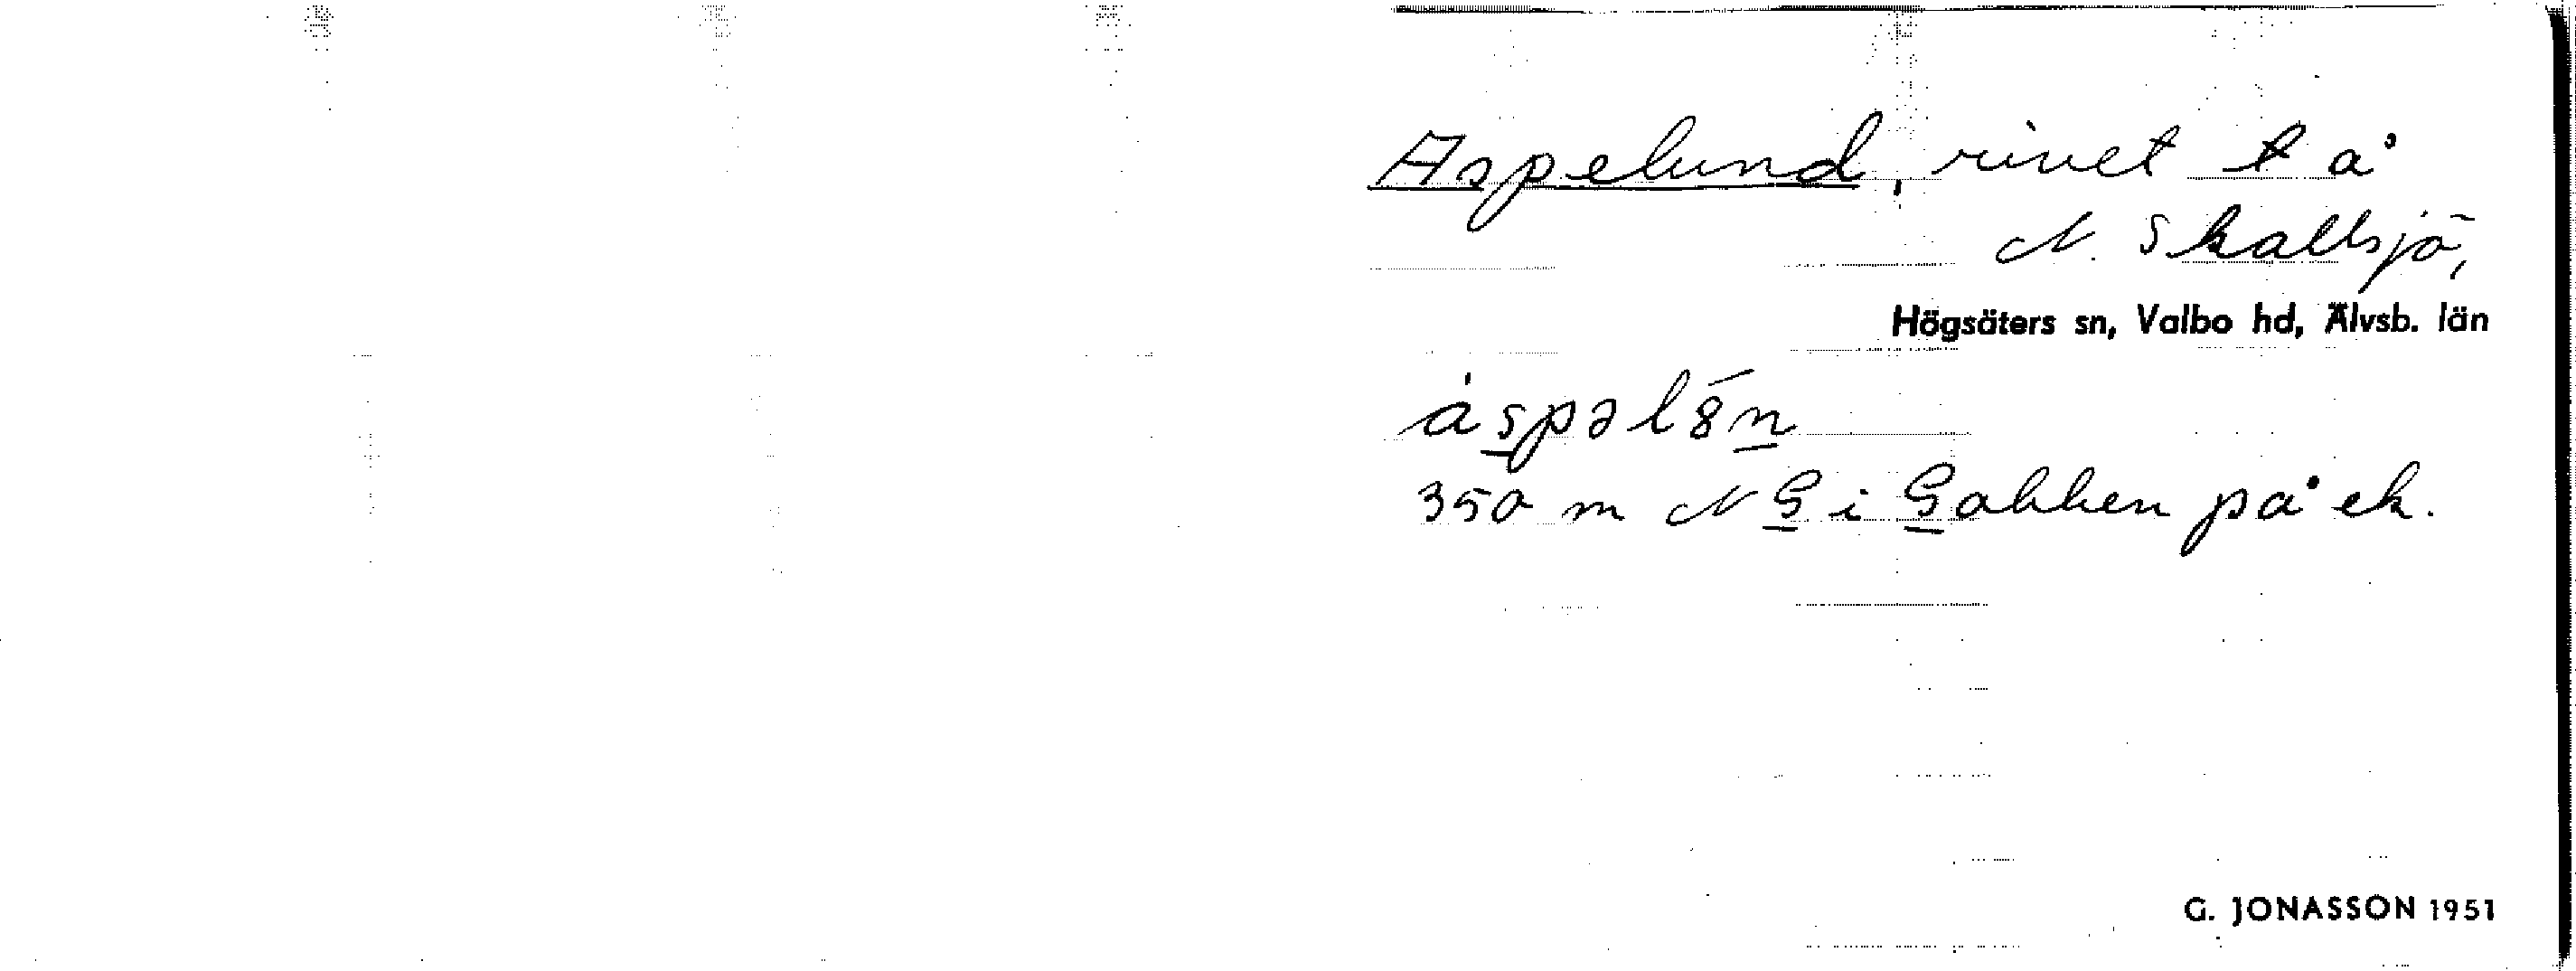 Aspelund, rivet t å
N. Skallsjö,
Högsäters sn, Valbo hd, Älvsb. län
350 m N G i Gabben på ek.
G. JONASSON 1951